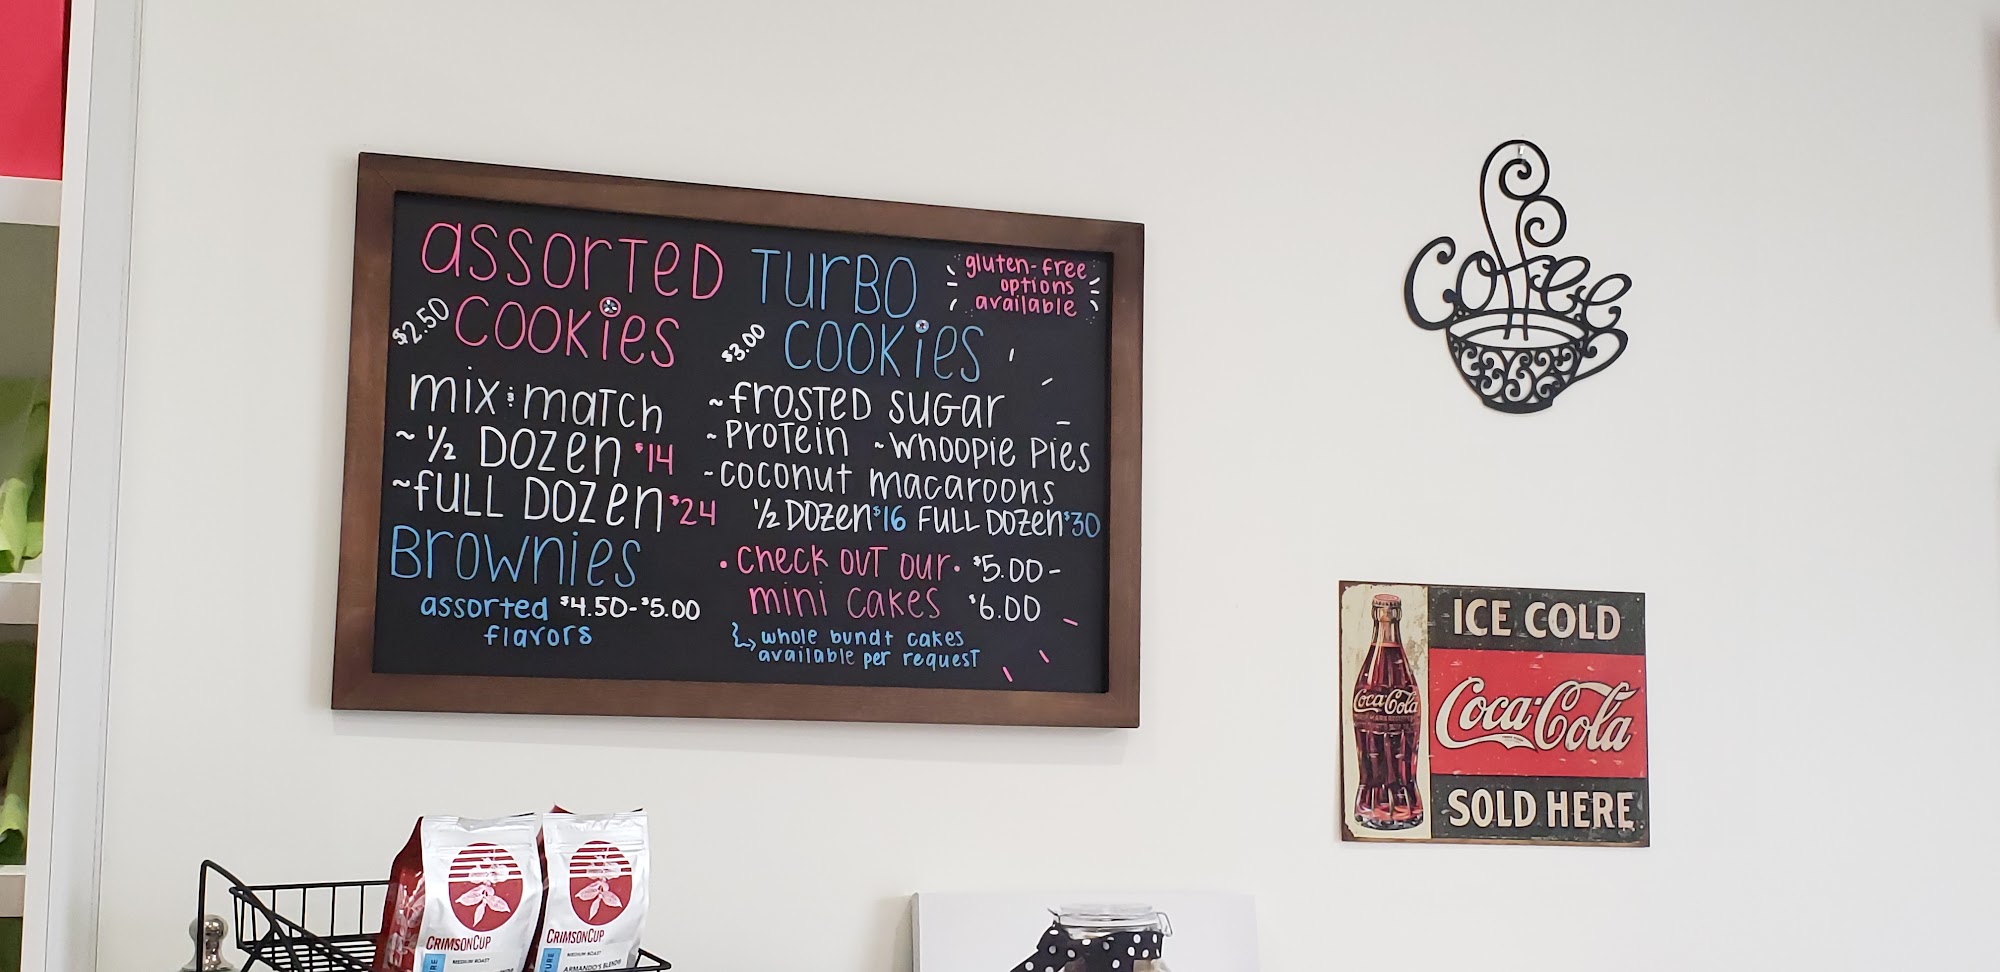 assorted
$2.50 cookies
mix & match
~ 1/2 Dozen $14
~ full Dozen $24
Brownies
assorted $4.50-$5.00
flavors
Turbo
$3.00 cookies
gluten-free
options
available
~ frosted sugar
~ protein ~ whoopie pies
~ coconut macaroons
1/2 Dozen $16 full Dozen $30
• check out our • $5.00-
mini cakes $6.00
whole bundt cakes
available per request
Coffee
ICE COLD
Coca-Cola
Coca-Cola
SOLD HERE
CRIMSONCUP
MEDIUM ROAST
CRIMSONCUP
MEDIUM ROAST
ARMANDO'S BLEND